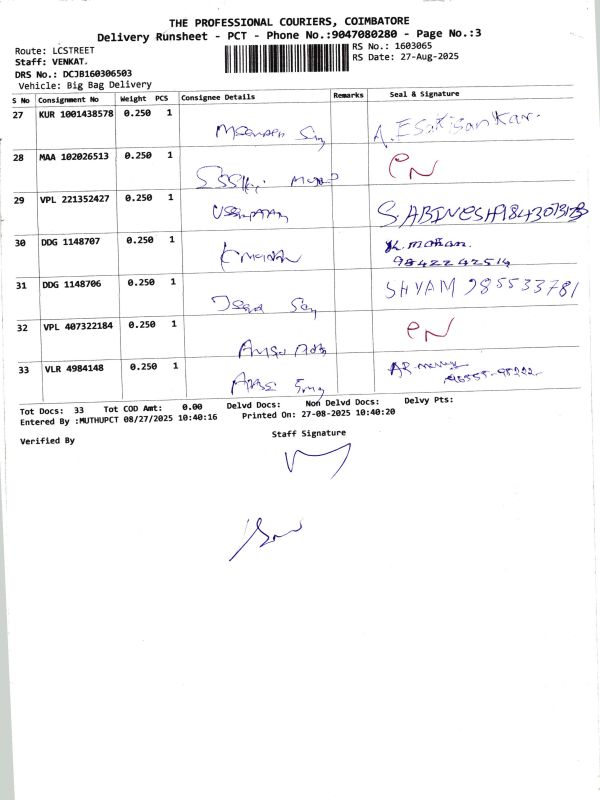 THE PROFESSIONAL COURIERS, COIMBATORE
Delivery Runsheet - PCT - Phone No.:9047080280 - Page No.:3
Route: LCSTREET
RS No.: 1603065
Staff: VENKAT.
RS Date: 27-Aug-2025
DRS No.: DCJB160306503
Vehicle: Big Bag Delivery
S No Consignment No Weight PCS Consignee Details Remarks Seal & Signature
27 KUR 1001438578 0.250 1 A. Esakisankar.
28 MAA 102026513 0.250 1
29 VPL 221352427 0.250 1 SABINESH
30 DDG 1148707 0.250 1 K. mohan.
9842242514
31 DDG 1148706 0.250 1 SHYAM 985533781
32 VPL 407322184 0.250 1
33 VLR 4984148 0.250 1
Tot Docs: 33 Tot COD Amt: 0.00 Delvd Docs: Non Delvd Docs: Delvy Pts:
Entered By :MUTHUPCT 08/27/2025 10:40:16 Printed On: 27-08-2025 10:40:20
Verified By
Staff Signature